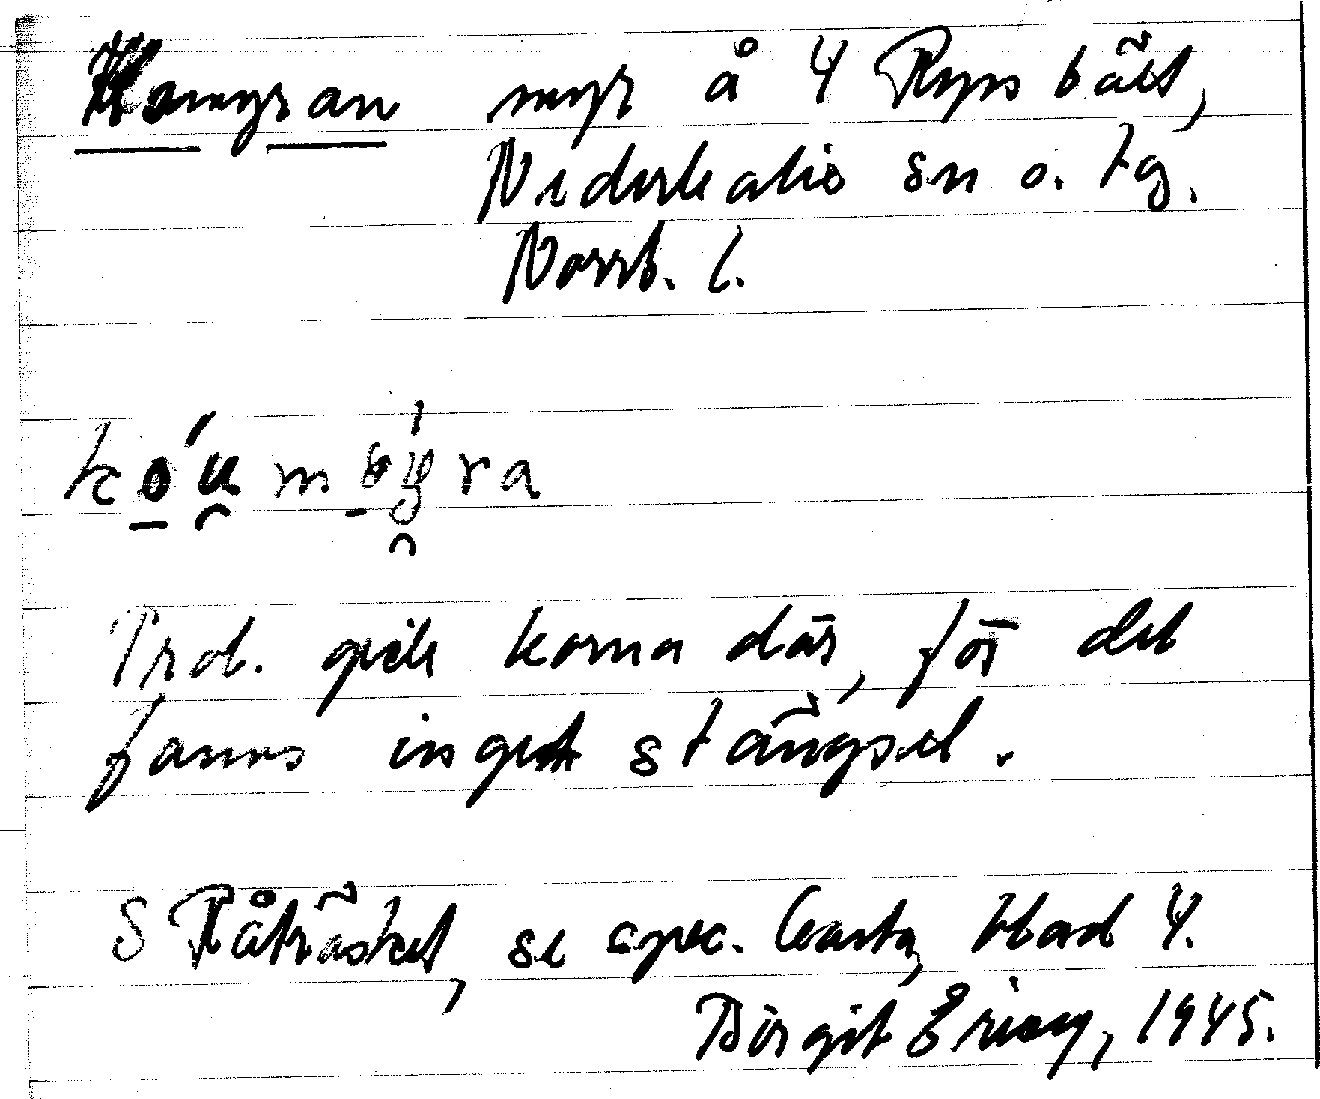 Komyran myr å 4 Ryss bält,
Nederkalix sn o. tg.
Norrb. l.
ko̱u̯mo̱y̯ra
Trol. gick korna där, för det
fanns inget stängsel.
S Råträsket, se spec. karta blad 4.
Birgit 1945.